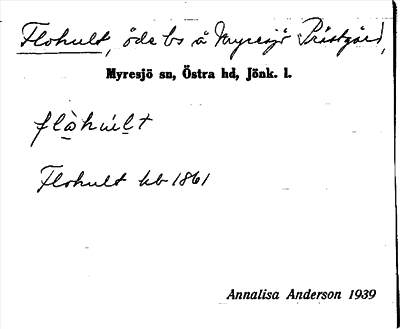 Flohult, öde bs å Myresjö Prästgård,
Myresjö sn, Östra hd, Jönk. l.
flo̱̊̀hul̲t
Flohult kb 1861
Annalisa Anderson 1939